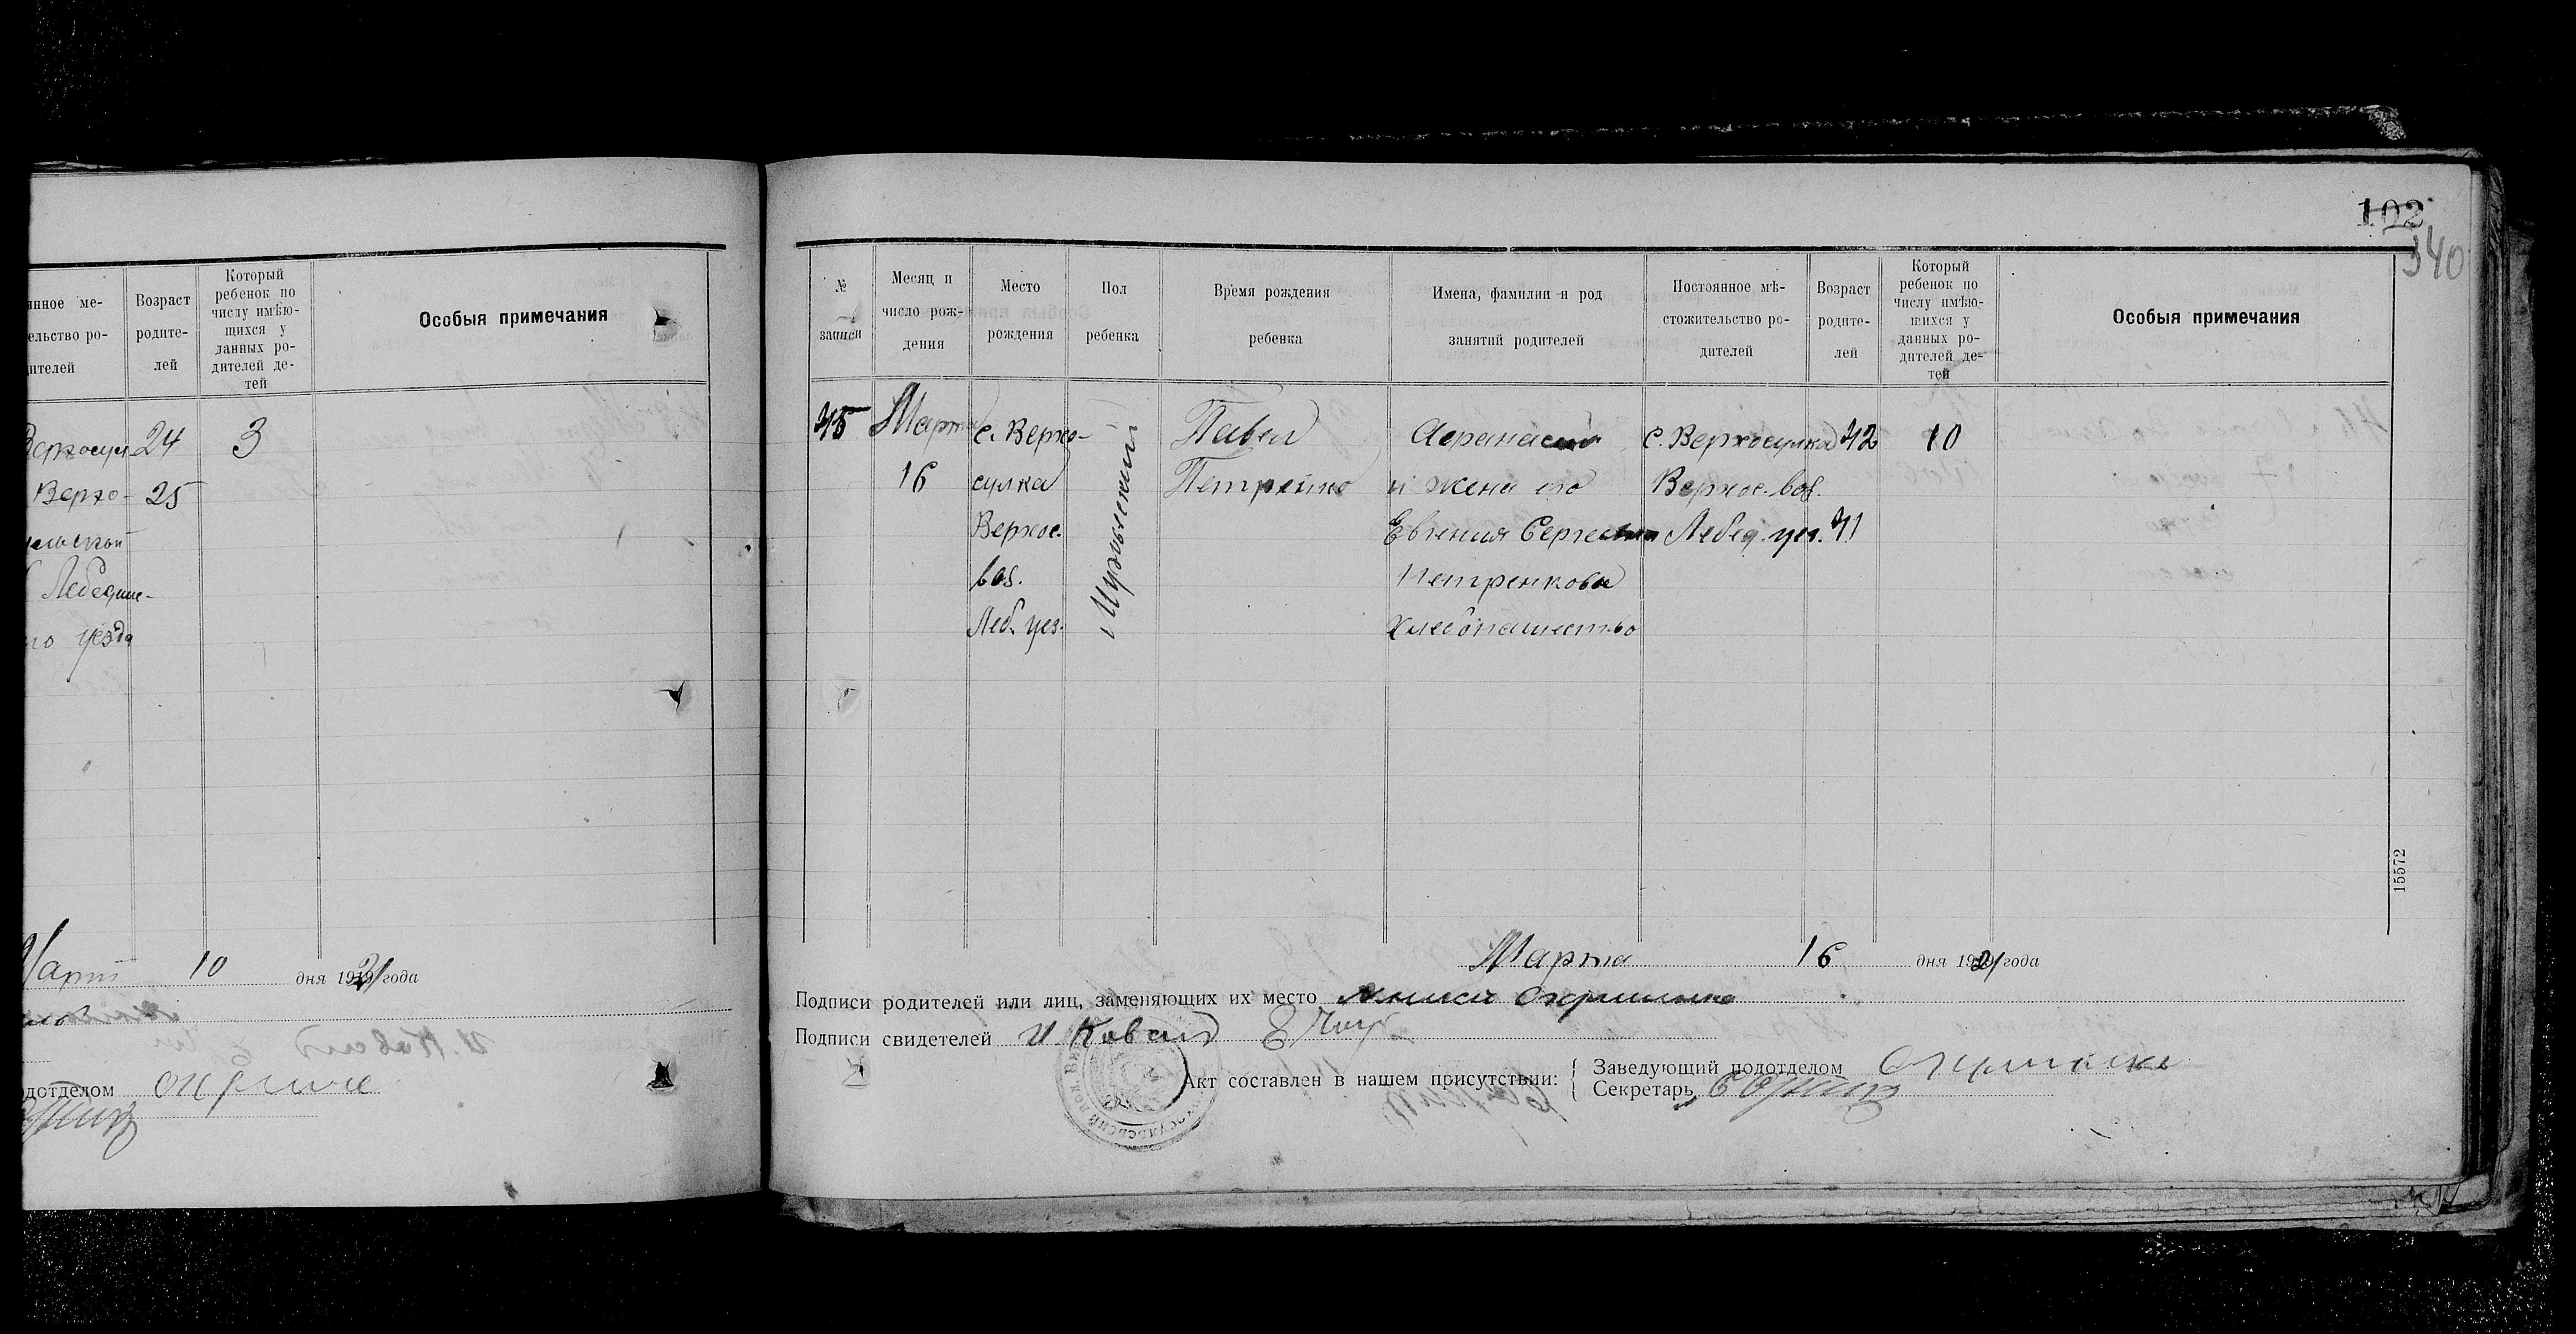 102
340
нное ме-
ельство ро-
ителей
Возраст
родите-
лей
Который
ребенок по
числу имѣю-
щихся у
данных ро-
дителей де-
тей
Особыя примечания
24
3
Верхо-
25
Лебедин-
го уезда
Март 10 дня 1921 года
одотделом
№
записи
Месяц и
число рож-
дения
Место
рождения
Пол
ребенка
Время рождения
ребенка
Имена, фамилии и род
занятий родителей
Постоянное мѣ-
стожительство ро-
дителей
Возраст
родите-
лей
Который
ребенок по
числу имѣю-
щихся у
данных ро-
дителей де-
тей
Особыя примечания
45
Март
16
с. Верхо-
сулка
Верхос.
вол.
Леб. уез.
Мужеский
Павел
Петренко
Афанасий
и жена его
Евгения Сергеевна
Петренкова
хлебопашество
с. Верхосулка
Верхос. вол.
Лебед. уез.
42
41
10
15572
Марта 16 дня 1921 года
Подписи родителей или лиц, заменяющих их место
Подписи свидетелей И. Ковал
Акт составлен в нашем присутствии:
Заведующий подотделом
Секретарь